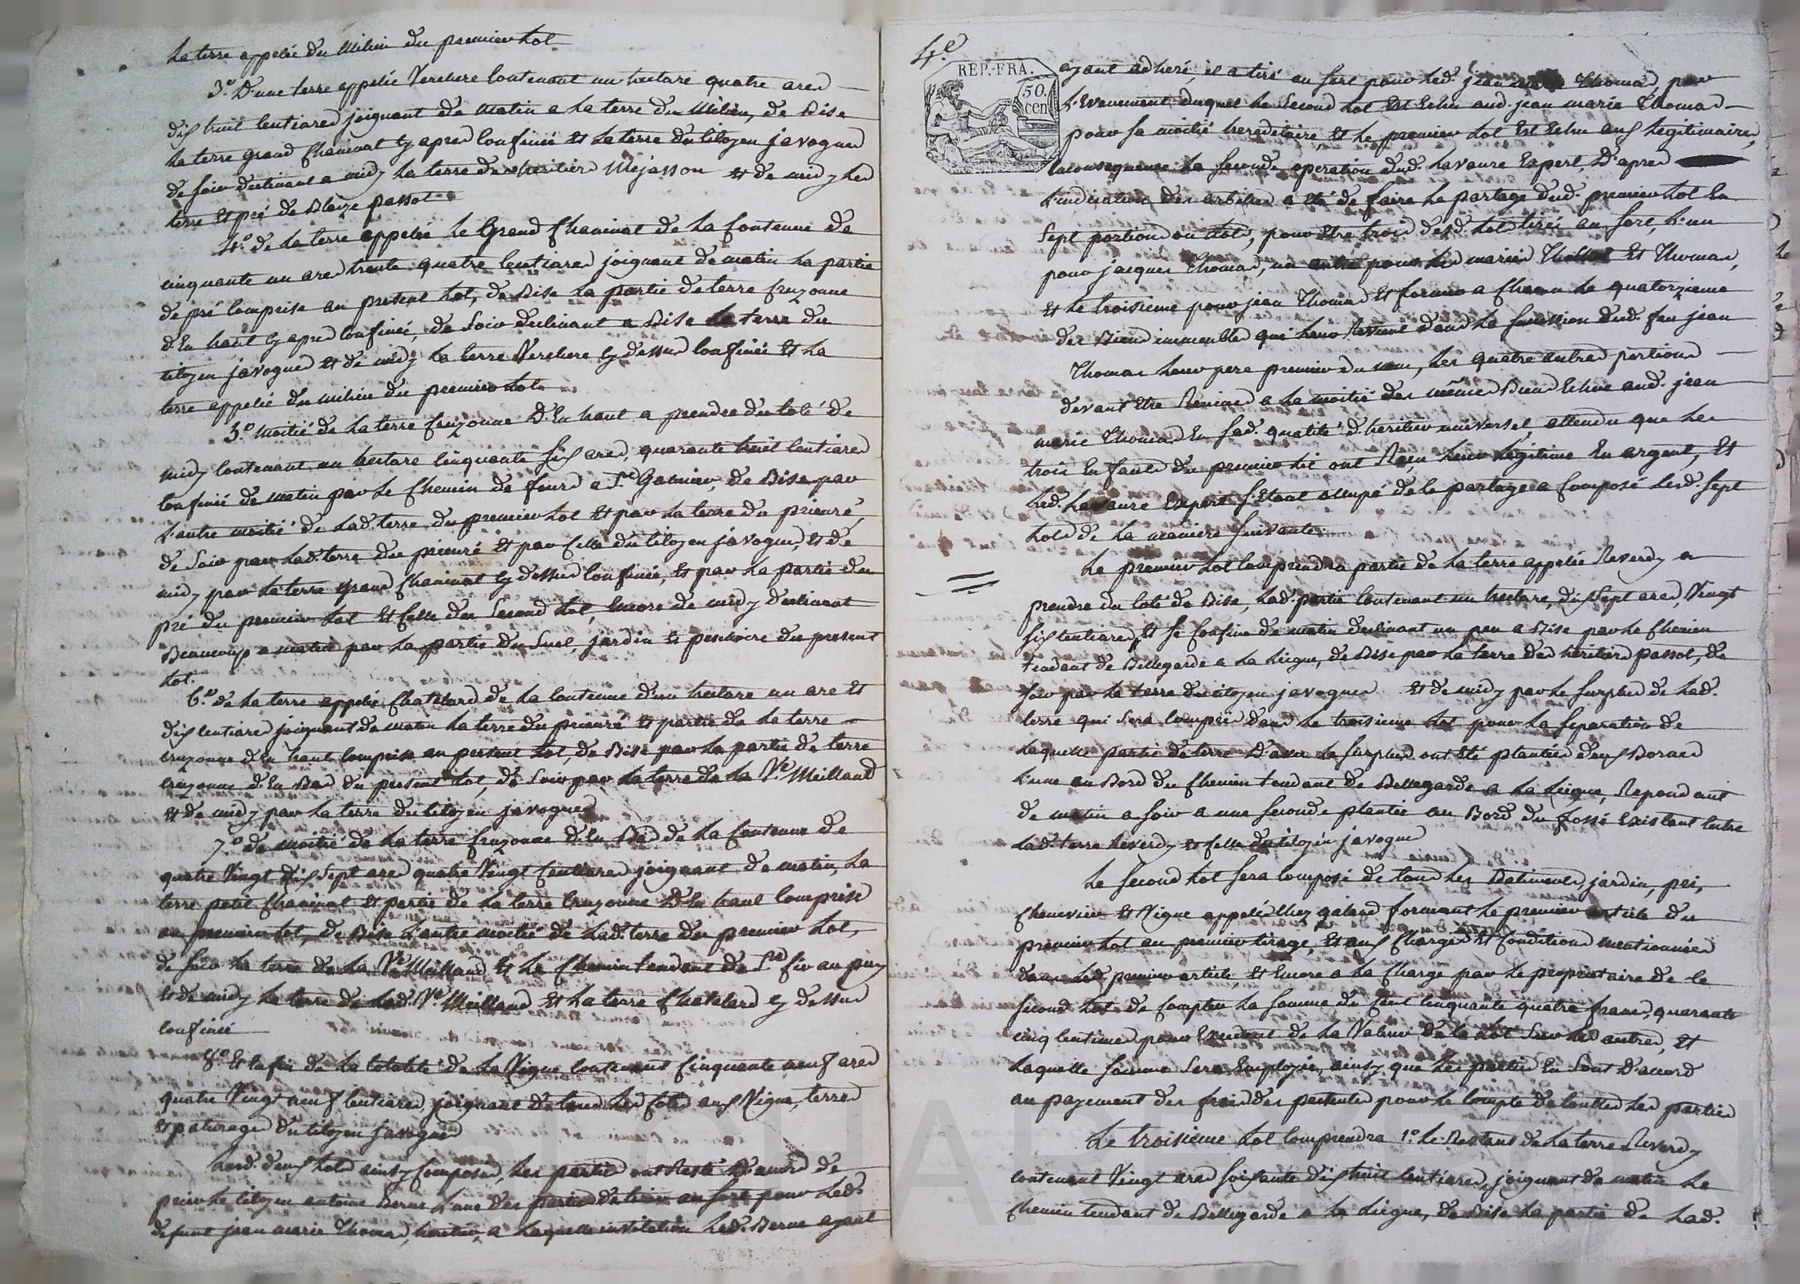 la terre appelée du Milieu du premier lot
3.º D'une terre appelée Verchere contenant un hectare quatre ares
dix huit centiares joignant de matin a la terre du Milieu, de Bise
la terre grand Chaninal cy apres confinée et la terre du citoyen javogues
de soir declinant a midy la terre des heritiers Mejasson et de midy les
terre et pré de Blaize passot
4.º de la terre appelée le Grand Chaninal de la contenue de
cinquante un ares trente quatre centiares joignant de matin la partie
de pré comprise au present lot, de Bise la partie de terre Cruzonne
d'En haut cy apres confinée, de Soir declinant a Bise la terre du
citoyen javogues et de midy la terre Verchere cy dessus confinée et la
terre appelée du milieu du premier lot
5.º moitié de la terre Cruzonne D'En haut a prendre du coté de
midy contenant un hectare cinquante six ares, quarante huit centiares
confiné de matin par le Chemin de feurs a St Galmier de Bise par
l'autre moitié de lad. terre du premier lot et par la terre du prieuré,
de Soir par lad. terre du prieuré et par celle du citoyen javogues, et de
midy par la terre grand Chaninal cy dessus confinée, et par la partie du
pré du premier lot et celle du Second lot, Encore de midy declinant
Beaucoup a matin par la partie du Suel, jardin et du present
lot.
6.º de la terre appelée Chatelard de la contenue d'un hectare un are et
dix centiares joignant de matin la terre du prieuré et partie de la terre
cruzonne d'En haut comprise au present lot, de Bise par la partie de terre
cruzonne d'En Bas du present lot, de Soir par la terre de la Ve Meilland
et de midy par la terre du citoyen javogues
7.º de moitié de la terre Cruzonne d'En Bas de la contenue de
quatre Vingt dix Sept ares quatre Vingt Centiares joignant de matin, la
terre petit Chaninal et partie de la terre Cruzonne D'En haut comprise
au premier lot, de Bise l'autre moitié de lad. terre du premier lot,
de soir la terre de la Ve Meilland et le Chemin tendant de St Cir au puy
et de midy la terre de lad. Ve Meilland et la terre Chatelard cy dessus
confinée
8.º Et enfin de la totalité de la Vigne contenant Cinquante neuf ares
quatre Vingt neuf centiares joignant de tous les cotés aux Vigne, terres
et paturages du citoyen javogues
Lesd. deux lots ainsy Composés, les parties ont Resté D'accord de
prier le citoyen antoine Berne l'une des parties de tirer au sort pour led.
defunt jean marie Thomas, heritier, a laquelle invitation led. Berne ayant
4.e
REP. FRA.
50.
cen
ayant adheré, il a tiré au sort pour led. jean Thomas, par
l'Evenement duquel le Second lot Est Echu aud. jean marie Thomas
pour sa moitié hereditaire et le premier lot Est Echu aux legitimaires,
Enconsequence la seconde operation dud. lavaure Expert, D'apres
l'indication des arbitres a été de faire le partage dud. premier lot En
Sept portions ou lots, pour Etre trois desd. lots tirés au sort, l'un
pour jacques Thomas, un autre pour les mariés et Thomas,
et le troisieme pour jean Thomas et formera Chacun le quatorzieme
des Biens immeubles qui leur Revient dans la succession dud. feu jean
Thomas leur pere premier du nom, les quatre autres portions
devant Etre Reunies a la moitié des mêmes Biens Echue aud. jean
marie Thomas En sad. qualité d'heritier universel attendu que les
trois Enfants du premier lit ont Reçu leur légitime En argent, et
led. lavaure Expert S'Etant occupé de ce partage a Composé lesd. sept
lots de la maniere suivante
Le premier lot Comprendra partie de la terre appelée Reverdy a
prendre du coté de Bise, lad. partie contenant un hectare, dix sept ares, Vingt
six centiares, et se confine de matin declinant un peu a Bise par le Chemin
tendant de Bellegarde a la Liegue, de Bise par la terre des heritiers passot, de
soir par la terre du citoyen javogues et de midy par le surplus de lad.
terre qui sera compris dans le troisieme lot pour la separation de
laquelle partie de terre D'avec le surplus ont été plantées deux Bornes
l'une au Bord du Chemin tendant de Bellegarde a la Liegue, Repondant
de matin a soir a une seconde plantée au Bord du fossé Existant Entre
lad. terre Reverdy et celle du citoyen javogues
Le second lot sera composé de tous les Batiments, jardin, pré,
Chenevier et Vigne appelés Chez galand formant le premier article du
premier lot au premier tirage, et aux Charges et Conditions mentionnées
dans led. premier article et Encore a la Charge par le proprietaire de ce
second lot de compter la somme de Cent cinquante quatre francs, quarante
cinq centimes pour Excedent de la Valeur de ce lot Sur les autres, et
laquelle somme Sera Employée, ainsy que les parties En Sont D'accord
au payement des frais des presentes pour le compte de toutes les parties
Le troisieme lot comprendra 1.º le Restant de la terre Reverdy
contenant Vingt ares soixante dix huit centiares, joignant de matin le
Chemin tendant de Bellegarde a la Liegue, de Bise la partie de lad.